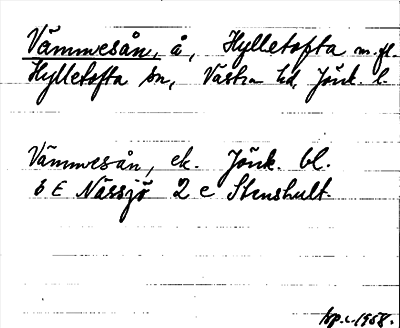 Vämmesån, å, Hylletofta m. fl.
Hylletofta sn, Västra hd, Jönk. l.
Vämmesån, ek. Jönk. bl.
6 E Nässjö 2 e Stenshult.
top.c. 1958.